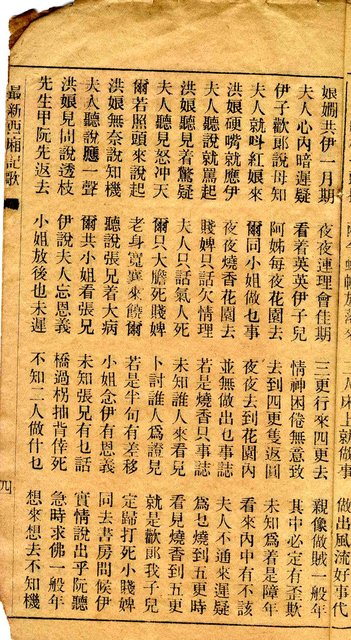 做出風流好事代
娘嫺共伊一月期 夜夜連理會佳期 三更行來四更去 親像做賊一般年
夫人心內暗遲疑 看着英英伊子兒 情神困倦無意致 其中必定有歪欺
伊子歡郎說母知 阿姊每夜花園去 去到四更隻返圓 未知為着是障年
夫人就呌紅娘來 爾同小姐做乜事 夜夜去到花園內 看來內中有不該
洪娘硬嘴就應伊 夜夜燒香花園去 並無做出乜事誌 夫人不通來遲疑
夫人聽說就罵起 賤婢只話欠情理 若是燒香只事誌 為乜燒到五更時
洪娘聽見着驚疑 夫人只話氣人死 未知誰人來看見 看見燒香到五更
夫人聽見怒冲天 爾只大膽死賤婢 卜討誰人為證兒 就是歡郎我子兒
爾若照頭來說起 老身寬襄來饒爾 若是半句有差移 定歸打死小賤婢
洪娘無奈說知機 聽說張兄着大病 小姐念伊有恩義 同去書房問候伊
夫人聽說應一聲 爾共小姐看張兄 未知張兄有乜話 實情說出乎阮聽
洪娘見問說透枝 伊說夫人忘恩義 橋過柺抽背倖死 急時求佛一般年
先生甲阮先返去 小姐放後也未遲 不知二人做什乜 想來想去不知機
最新西廂記歌 四